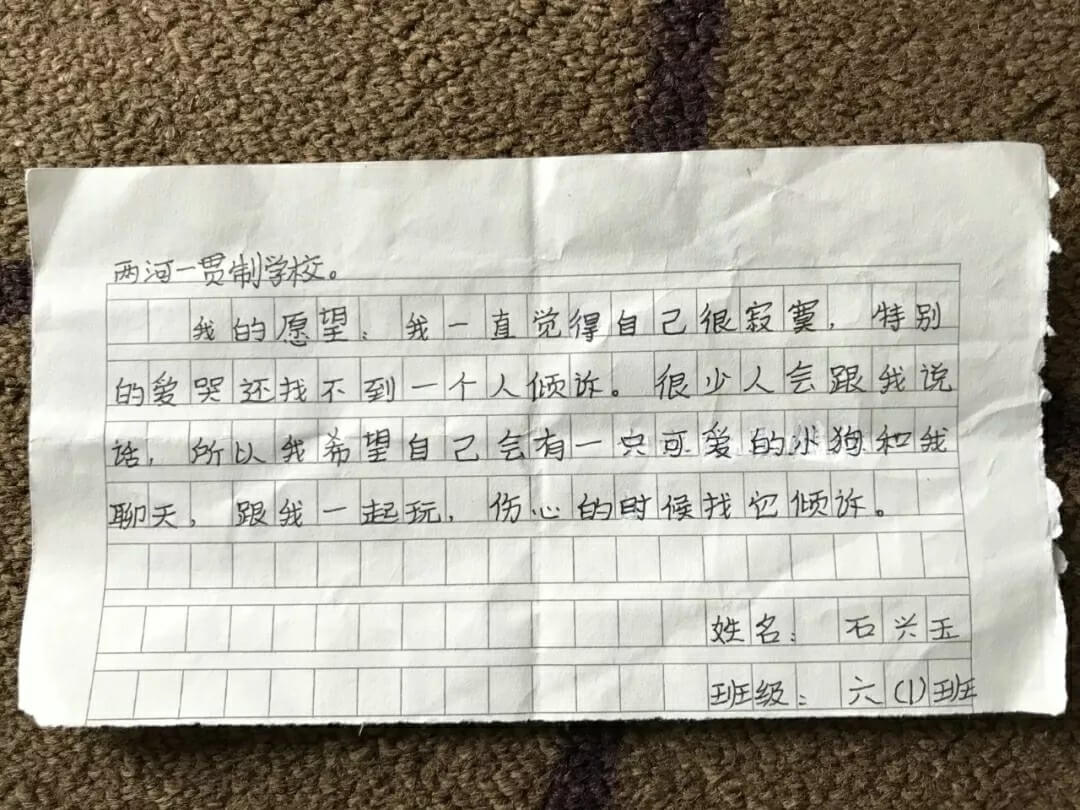 两河一贯制学校。
我的愿望：我一直觉得自己很寂寞，特别
的爱哭还找不到一个人倾诉。很少人会跟我说
话，所以我希望自己会有一只可爱的小狗和我
聊天，跟我一起玩，伤心的时候找它倾诉。
姓名：石兴玉
班级：六(1)班